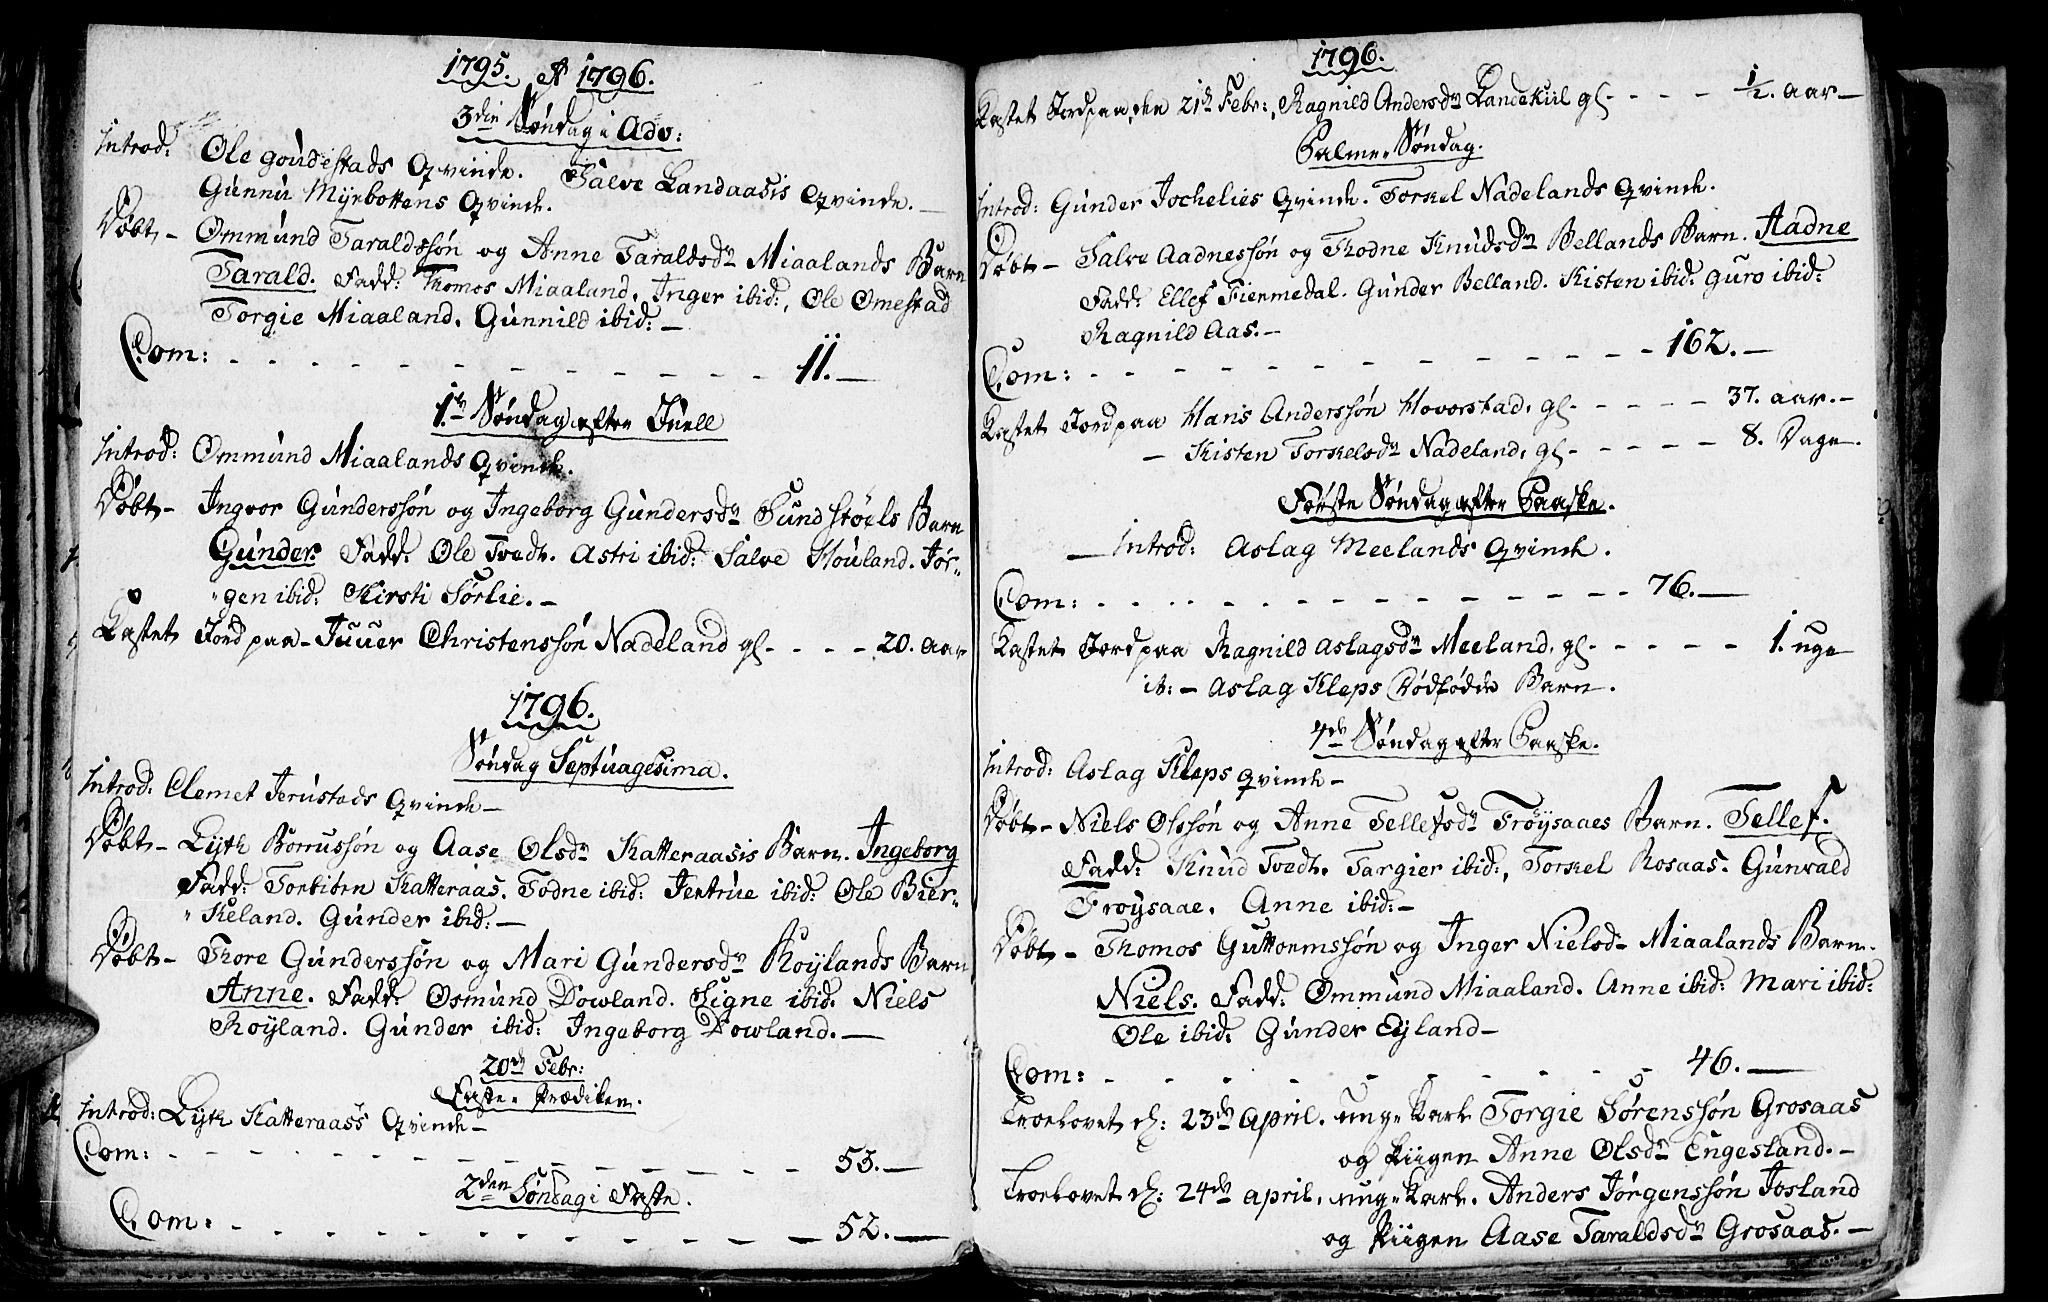 1795. et 1796.
3die Søndag i Adv:
Introd: Ole goudestads Qvinde. Salve Landaasis Qvinde. —
Gunnu Myrbottens Qvinde.
Døbt — Ommund Taraldssøn og Anne Taraldsdr Miaalands Barn
Tarald. Fadd: Thomos Miaaland, Inger ibid:, Ole Omestad
Torgie Miaaland. Gunnild ibid: —
Com: - - - - - - - - - - 11. —
1te Søndag efter Juell
Introd: Ommund Miaalands Qvinde.
Døbt — Ingvor Gunderssøn og Ingeborg Gundersdr Sundstøels Barn
Gunder. Fadd: Ole Tvedt. Astri ibid: Salve Houland. Jør-
"gen ibid: Kirsti Sørlie. —
Kastet Jord paa — Juuer Christenssøn Nadeland gl - - - - 20. aar
1796.
Søndag Septuagesima.
Introd: Clemet Jerustads Qvinde —
Døbt — Lyth Borrussøn og Aase Olsdr Katteraasis Barn. Ingeborg
Fadd: Torbiørn Katteraas. Todne ibid: Jertrue ibid: Ole Bier-
"Keland. Gunder ibid: —
Døbt — Thore Gunderssøn og Mari Gundersdr Røylands Barn
Anne. Fadd: Osmund Dowland. Signe ibid: Niels
Røyland. Gunder ibid: Ingeborg Dowland. —
20de Febr:
Faste-Prædiken.
Introd: Lyth Katteraass Qvinde —
Com: - - - - - - - - - - 53. —
2den Søndag i Faste.
Com: - - - - - - - - - - 52. —
1796.
Kastet Jord paa, den 21de Febr:, Ragnild Andersdr Landekiil gl - - - - 1/2. aar —
Palme-Søndag.
Introd: Gunder Jochelies Qvinde. Torkel Nadelands Qvinde.
Døbt — Salve Aadnessøn og Thodne Knudsdr Bellands Barn. Aadne
Fadd: Ellef Fiermedal. Gunder Belland. Kisten ibid: guro ibid:
Ragnild Aas. —
Com: - - - - - - - - - - 162. —
Kastet Jord paa Hans Anderssøn Hovorstad, gl - - - - - 37. aar. —
— Kisten Torkelsdr Nadeland, gl - - - - - 8. Dage.
Første Søndag efter Paaske.
— Introd: Aslag Meelands Qvinde.
Com: - - - - - - - - - - 76. —
Kastet Jord paa Ragnild Aslagsdr Meeland, gl - - - - - 1. uge
it: — Aslag Kleps Dødfødde Barn.
4de Søndag efter Paaske.
Introd: Aslag Kleps Qvinde —
Døbt — Niels Olssøn og Anne Tellefsdr Frøysaaes Barn. Tellef.
Fadd: Knud Tvedt. Targier ibid:, Torkel Rosaas. Gunvald
Frøysaae. Anne ibid: —
Døbt — Thomos Guttormssøn og Inger Nielsdr Miaalands Barn.
Niels. Fadd: Ommund Miaaland. Anne ibid: Mari ibid:
Ole ibid: Gunder Eyland —
Com: - - - - - - - - - - 46. —
Troelovet d: 23de April. unge Karl Torgie Sørenssøn Grosaas
og Piigen Anne Olsdr Engesland. —
Troelovet d: 24de april, unge Karl. Anders Jørgenssøn Josland
og Piigen Aase Taraldsdr Grosaas. —